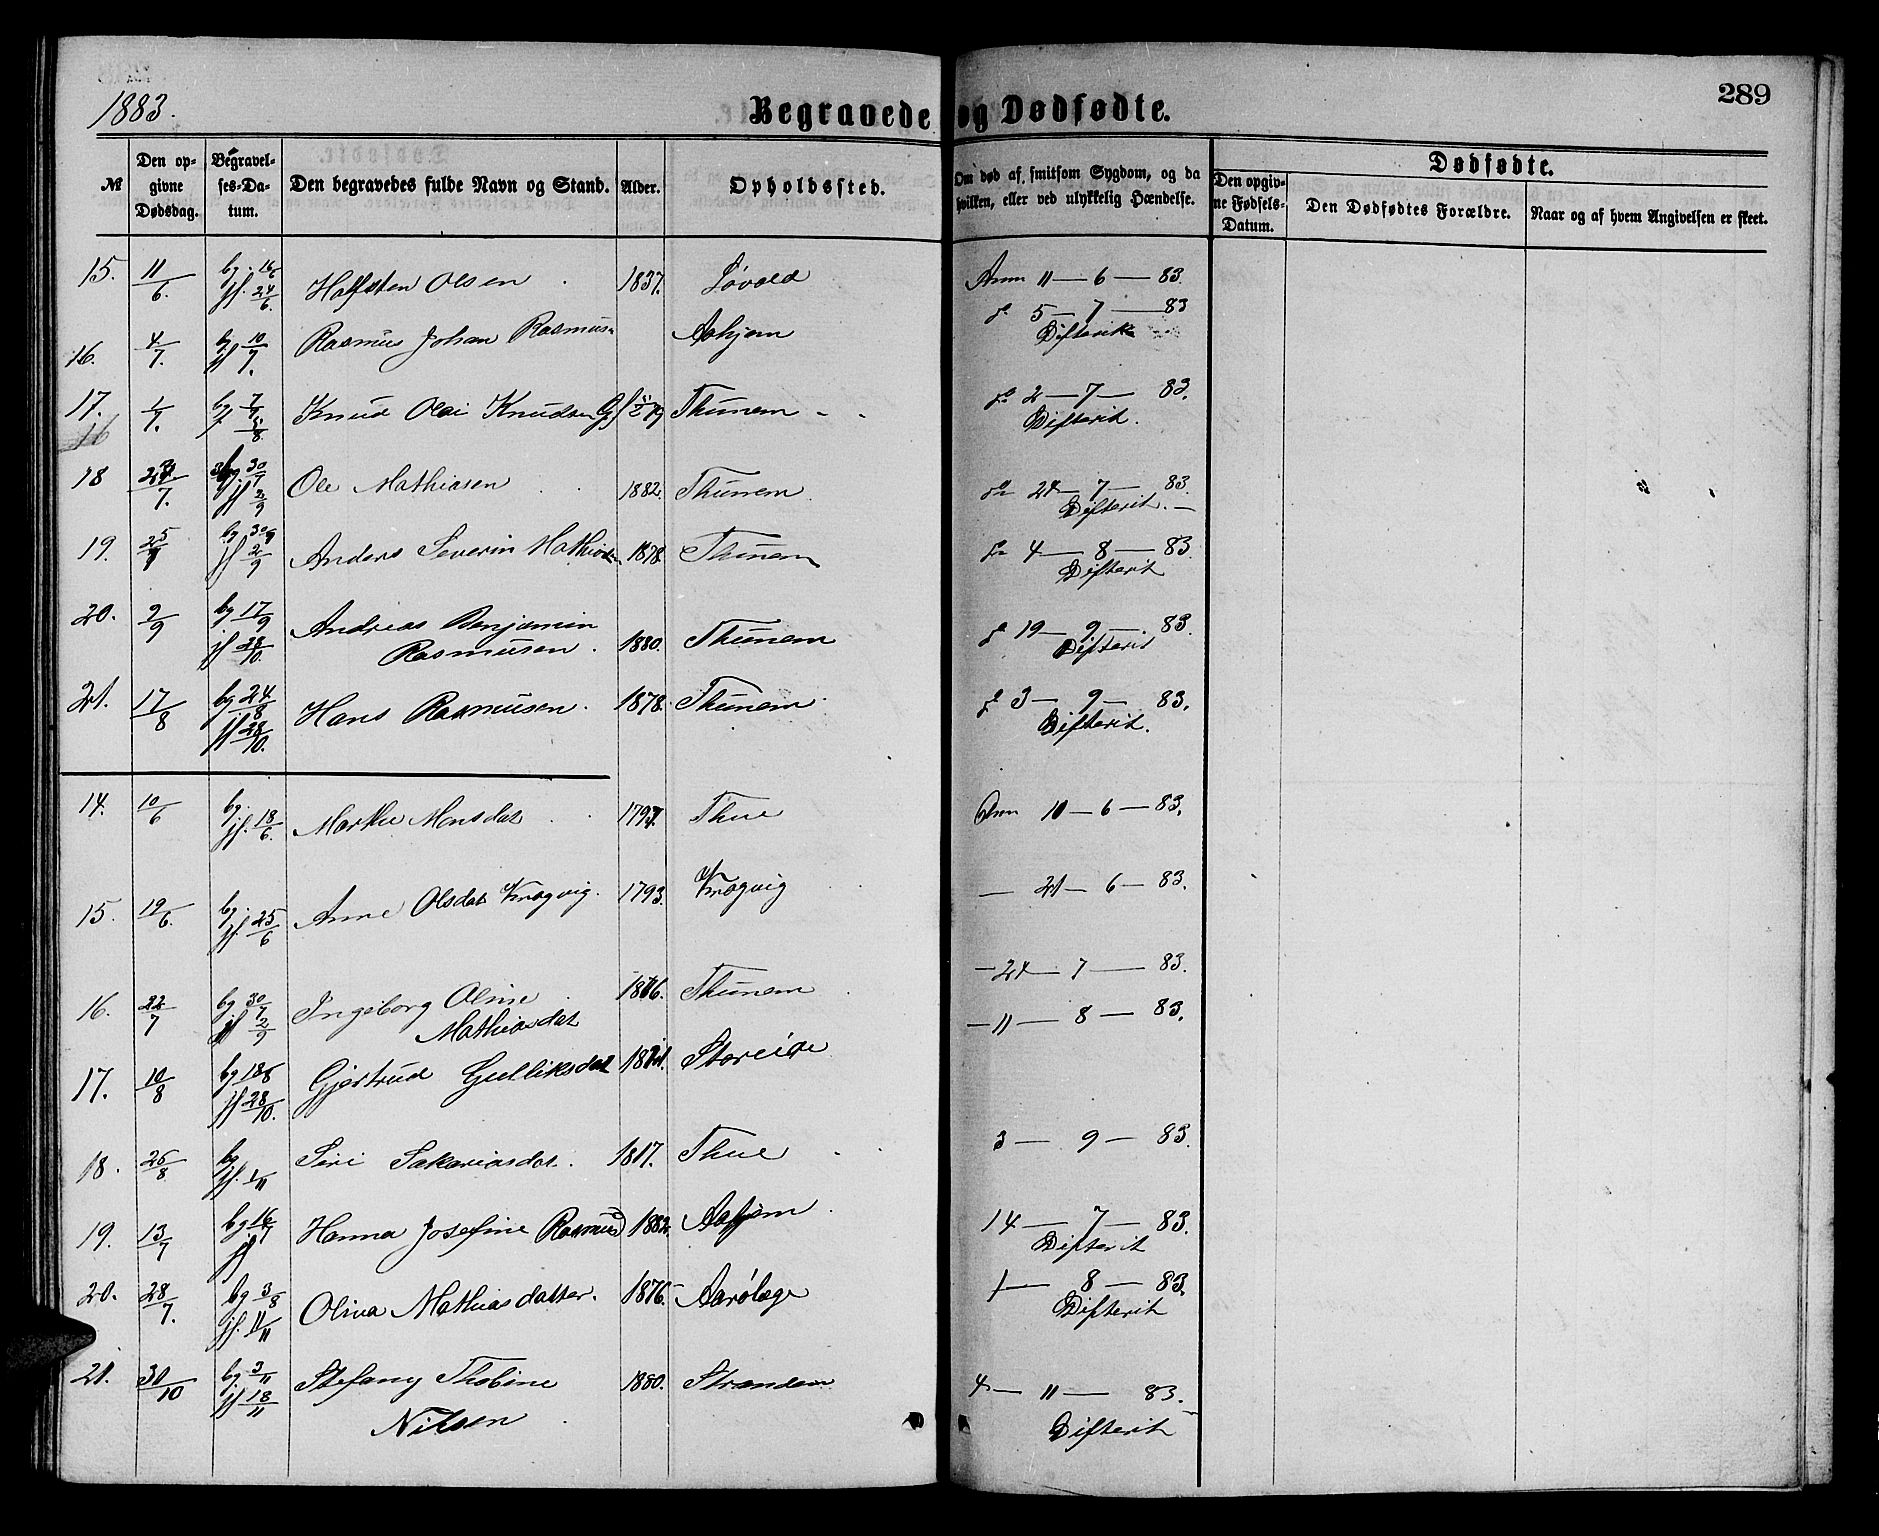 289
1883. Begravede og Dødfødte.
№ Den opgivne Dødsdag. Begravelses-Datum. Den begravedes fulde Navn og Stand. Alder. Opholdssted. Om død af smitsom Sygdom, og da hvilken, eller ved ulykkelig Hændelse. Dødfødte.
Den opgivne Fødsels-Datum. Den Dødfødtes Forældre. Naar og af hvem Angivelsen er skeet.
15. 11/6. bg. 16/6 jf. 24/6. Halsten Olsen 1837. Løvold Anm 11 — 6 — 83.
16. 4/7. bg jf 10/7. Rasmus Johan Rasmusn Aahjem do 5 — 7 — 83
Difterit
17. 1/7. bg 7/7 jf. 5/8 Knud Olai Knudsen Thunem do 2 — 7 — 83.
Difterit.
18 /7. bg. 30/7 jf 2/9 Ole Mathiasen 1882. Thunem do 24 — 7 — 83.
Difterit. —
19. 25/7 bg 30/7 jf 2/9 Anders Severin Mathiasen 1878. Thunem do 4 — 8 — 83.
Difterit
20. 9/9 bg 17/9 jf 28/10. Andreas Benjamin
Rasmusen. 1880. Thunem do 19 — 9 — 83.
Difterit
21. 17/8 bg 24/8 jf 28/10. Hans Rasmusen. 1878. Thunem do 3 — 9 — 83.
Difterit.
14. 10/6 bg. jf. 18/6. Marthe Monsdat 1797. Thue Anm 10 — 6 — 83.
15. 19/6. bg. jf. 25/6 Anne Olsdat Kragvig. 1793. Kragvig — 21 — 6 — 83.
16. 22/7 bg 30/7 jf 2/9 Ingeborg Oline
Mathiasdat 1876. Thunem — 24 — 7 — 83.
17. 10/8 bg 18/8 jf 28/10. Gjertrud Gulliksdat Storeide — 11 — 8 — 83.
18. 26/8 bg jf. 1/11 Siri Sakariasdat. 1817. Thue 3 — 9 — 83.
19. 13/7 bg. 16/7 jf Hanna Josefine Rasmusd 1882. Aahjem 14 — 7 — 83.
Difterit
20. 28/7. bg 3/8 jf. 11/11 Oliva Mathiasdatter. 1876. Aarølage 1 — 8 — 83.
Difterit
21. 30/10 bg 3/11 jf 18/11 Stefany Thobine
Nilsen 1880. Stranden 4 — 11 — 83.
Difterit